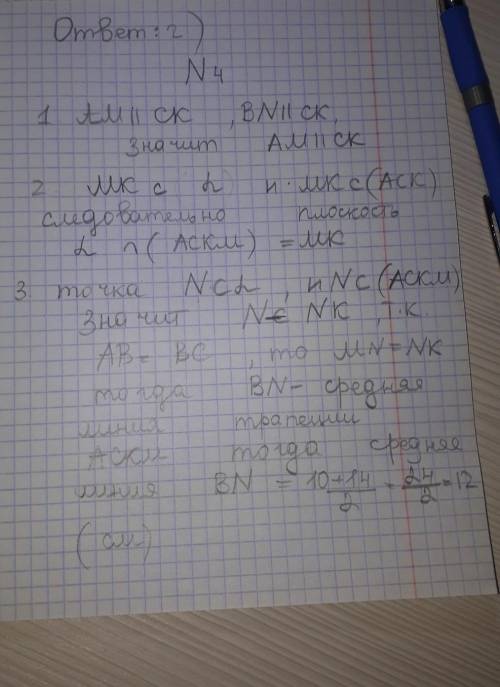 Ответ: 2)
N4
1 AM || CK , BN || CK,
значит AM || CK
2 MK c α и MK c (ACK)
следовательно плоскость
α ∩ (ACKM) = MK
3 точка N c α , и N c (ACKM)
Значит N є NK , т.к.
AB = BC , то MN = NK
тогда BN - средняя
линия трапеции
ACKM тогда средняя
линия BN = 10+14/2 = 24/2 = 12
(см)